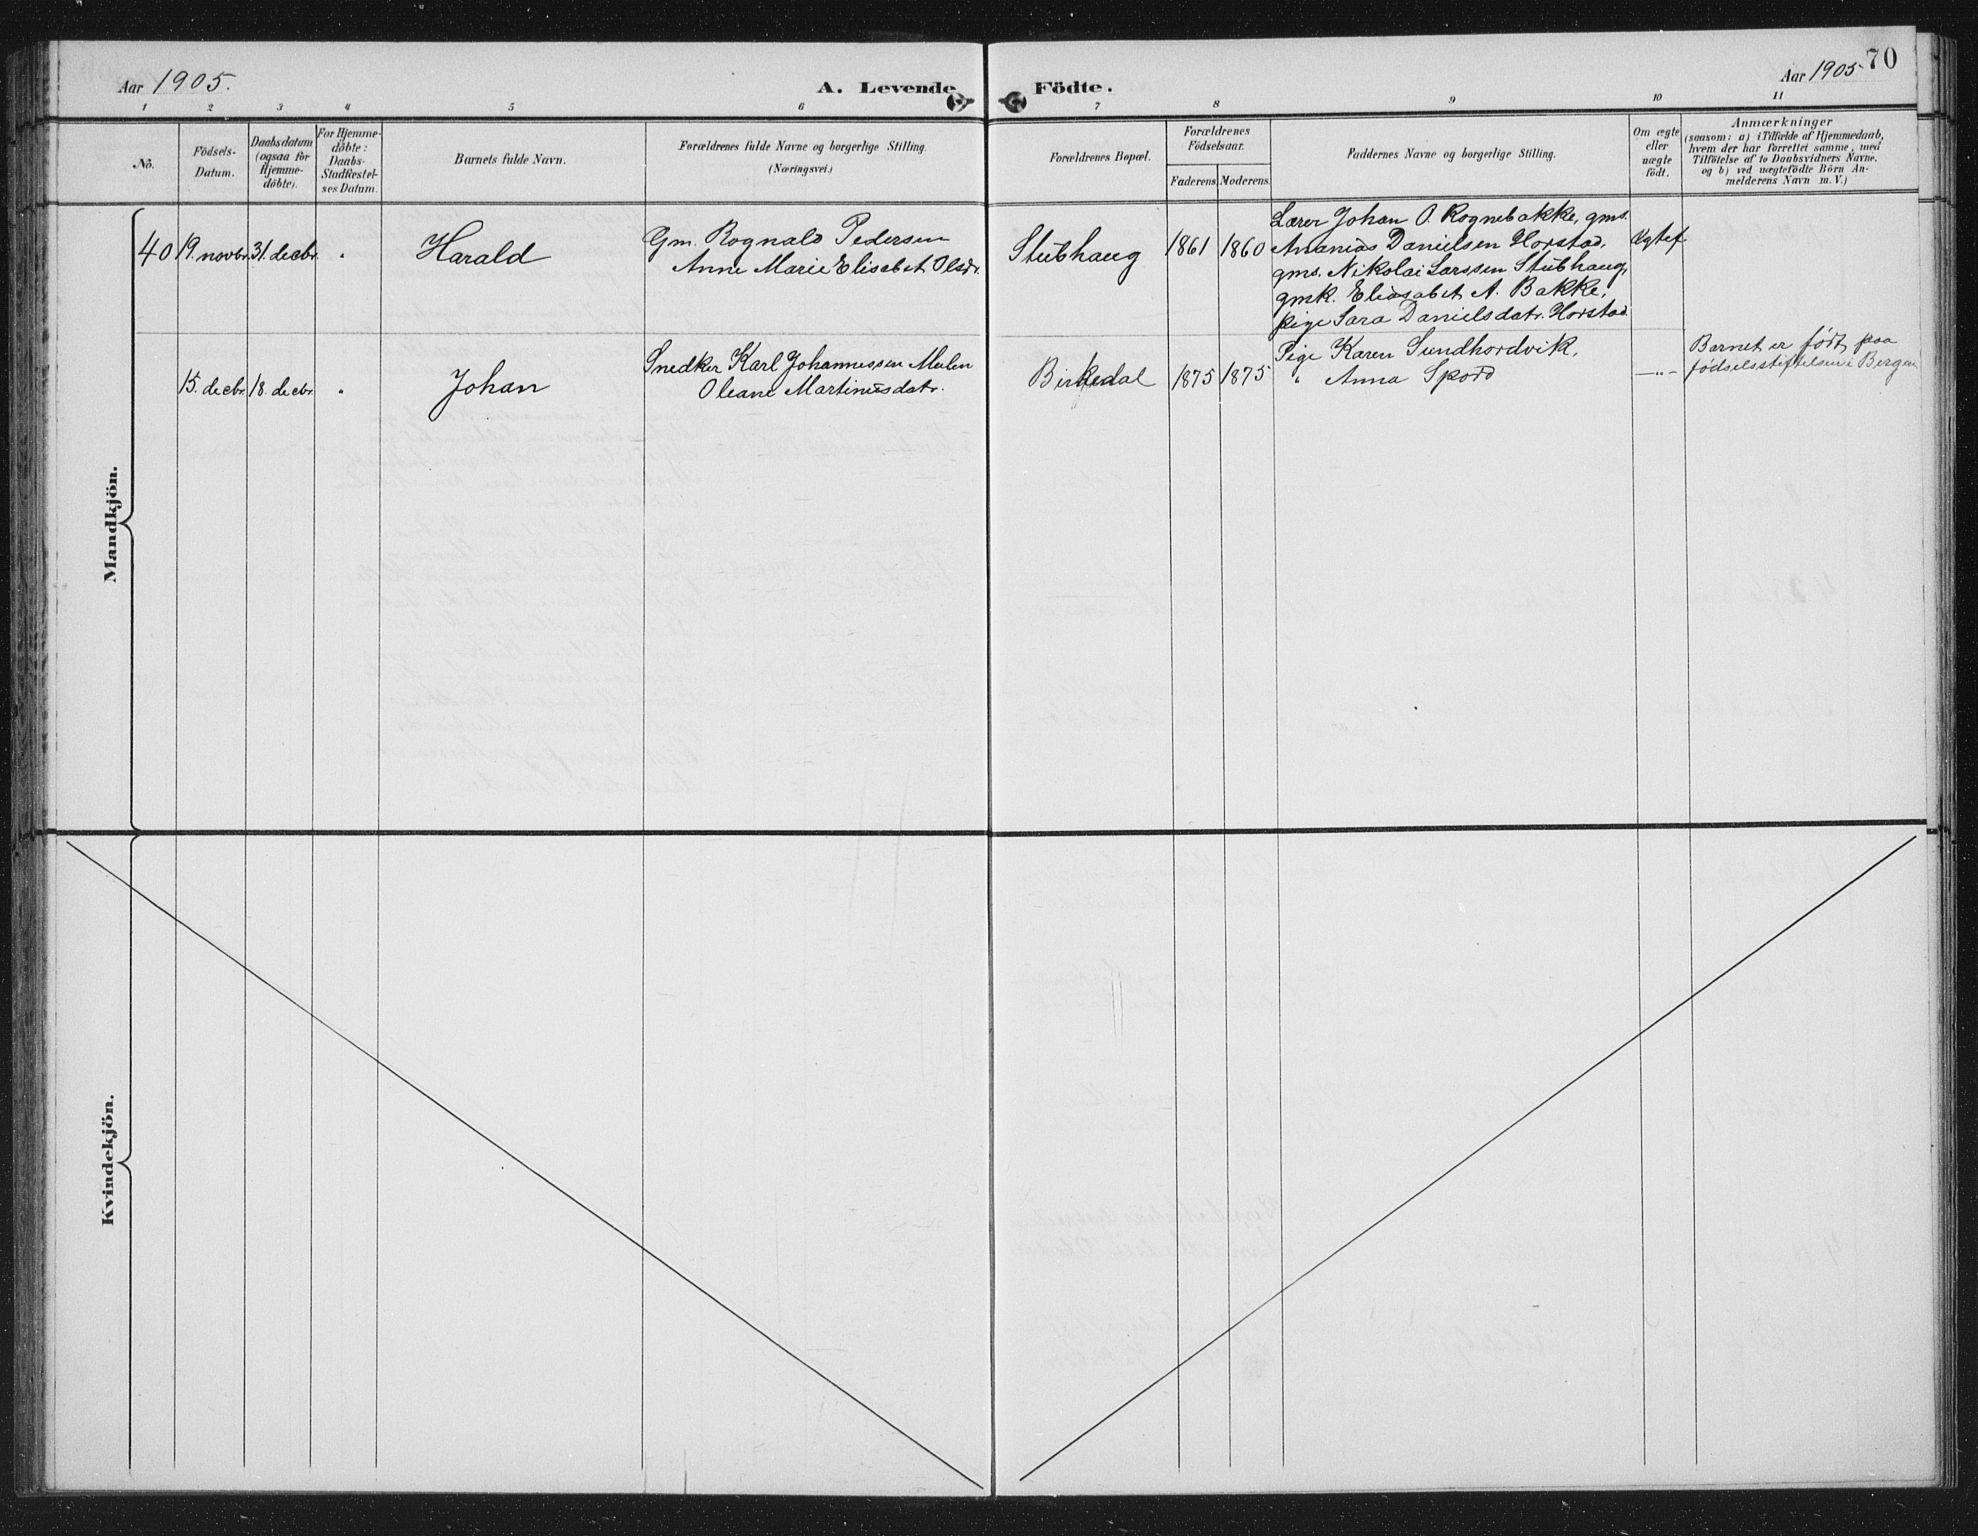 Aar 1905.
A. Levende Födte.
Aar 1905.
70
1 2 3 4 5 6 7 8 9 10 11
No.
Födsels-
Datum.
Daabsdatum
(ogsaa for
Hjemme-
döbte).
For Hjemme-
döbte:
Daabs-
Stadfæstel-
ses Datum.
Barnets fulde Navn.
Forældrenes fulde Navne og borgerlige Stilling.
(Næringsvei.)
Forældrenes Bopæl.
Forældrenes
Födselsaar.
Faderens. Moderens.
Faddernes Navne og borgerlige Stilling.
Om ægte
eller
uægte
födt.
Anmærkninger
(saasom: a) i Tilfælde af Hjemmedaab,
hvem der har forrettet samme, med
Tilföielse af to Daabsvidners Navne,
og b) ved uægtefödte Börn An-
melderens Navn m. V.)
Mandkjön.
40 19. novbr. 31. decbr. " Harald
Gm. Rognald Pedersen
Anne Marie Elisabet Olsdr.
Stubhaug 1861 1860
Lærer Johan O. Rognebakke, gms.
Ananias Danielsen Horstad,
gms. Nikolai Larssen Stubhaug,
gmk. Eliasabet A. Bakke,
pige Sara Danielsdatr. Horstad
Ægtef.
15. decbr. 18. decbr. " Johan
Snedker Karl Johannessen Mulen
Oleane Martinusdatr.
Birkedal 1875 1875
Pige Karen Sundhordvik,
" Anna Spord
—"—
Barnet er født paa
fødselsstiftelsen i Bergen
Kvindekjön.